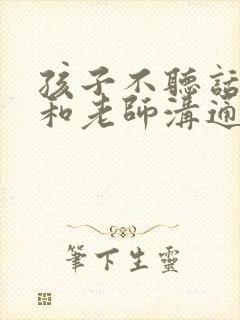 孩子不聽話
和老師溝通
筆下生靈